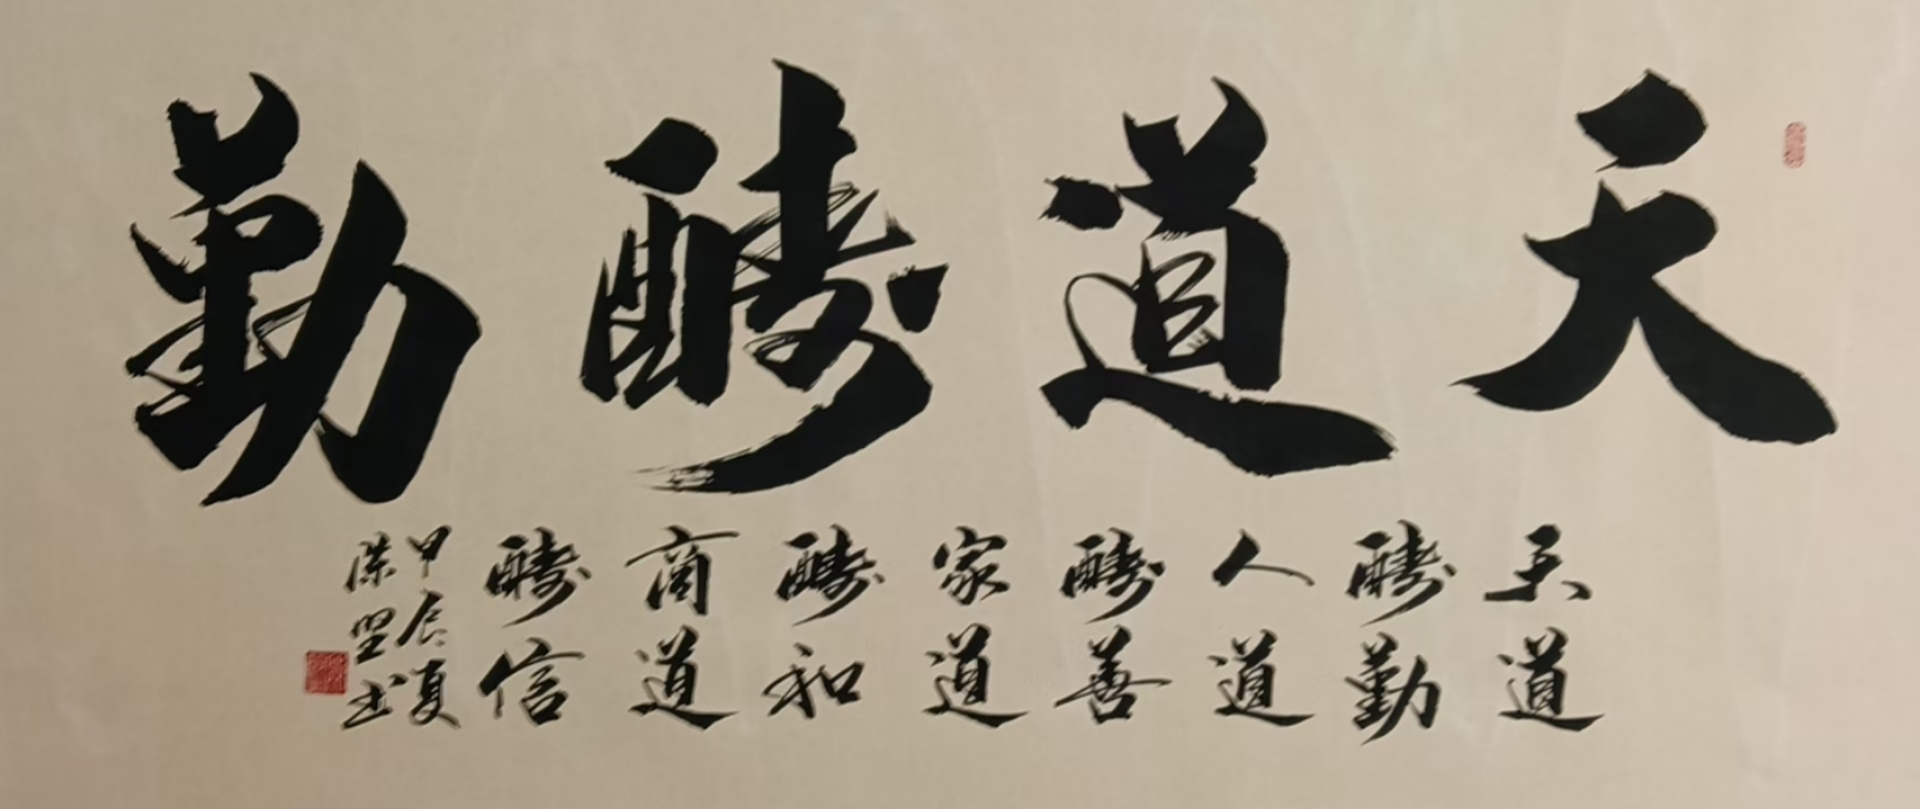 天道酬勤
天道
酬勤
人道
酬善
家道
酬和
商道
酬信
甲辰夏
陈坚书